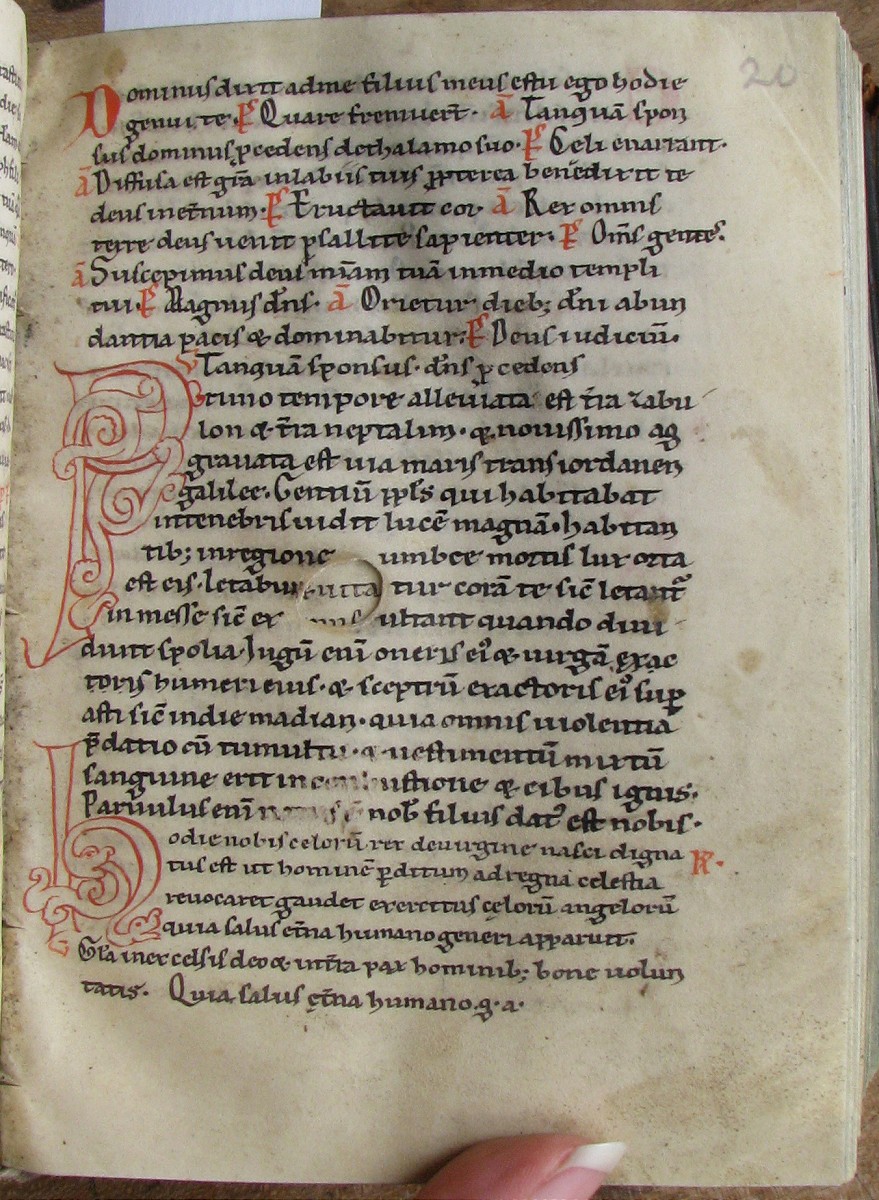 20
Dominus dixit ad me filius meus es tu ego hodie
genui te. Ps Quare fremuer̄t. ā Tanquā spon
sus dominus ꝓcedens de thalamo suo. Ps Celi enarrant.
ā Diffusa est gr̄a in labiis tuis ꝓpterea benedixit te
deus in et̄num. Ps Eructauit cor ā Rex omnis
terre deus uenit psallite sapienter. Ps Om̄s gentes.
ā Suscepimus deus mīam tuā in medio templi
tui. Ps Magnus dn̄s. ā Orietur dieb; dn̄i abun
dantia pacis & dominabitur. Ps Deus iudiciū.
V Tanquā sponsus. dn̄s ꝓcedens
Primo tempore alleuiata est t̄ra zabu
lon & t̄ra neptalim. & nouissimo ag
grauata est uia maris trans iordanen
galilee. Gentiū ppl̄s qui habitabat
in tenebris uidit lucē magnā. habitan
tib; in regione umbre mortis lux orta
est eis. letabun tur corā te sic̄ letant᷑
in messe sic̄ ex ultant quando diui
dunt spolia. Iugū enī oneris ei᾿ & uirgā exac
toris humeri eius. & sceptrū exactoris ei᾿ suꝑ
asti sic̄ in die madian. quia omnis uiolentia
p̄datio cū tumultu. & uestimentū mixtū
sanguine erit in ustione & cibus ignis.
Paruulus enī nob̄ filius dat᾿ est nobis.
Hodie nobis celorū rex de uirgine nasci digna R.
tus est ut hominē ꝑditum ad regna celestia
reuocaret gaudet exercitus celorū angelorū
quia salus et̄na humano generi apparuit.
V Gl̄a in excelsis deo & in t̄ra pax hominib; bone uolun
tatis. Quia salus et̄na humano.g.a.